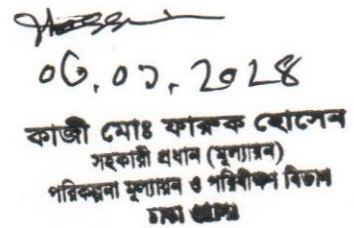 ০৩.০১.২০২৪
কাজী মোঃ ফারুক হোসেন
সহকারী প্রধান (মূল্যায়ন)
পরিকল্পনা মূল্যায়ন ও পরিবীক্ষণ বিভাগ
ঢাকা ওয়াসা